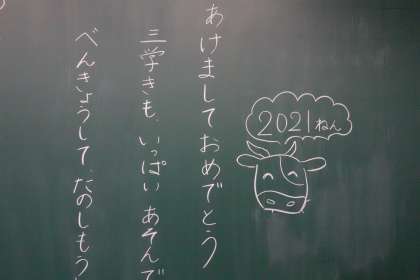 あけましておめでとう
三学きも、いっぱいあそんで
べんきょうして、たのしもう
2021ねん